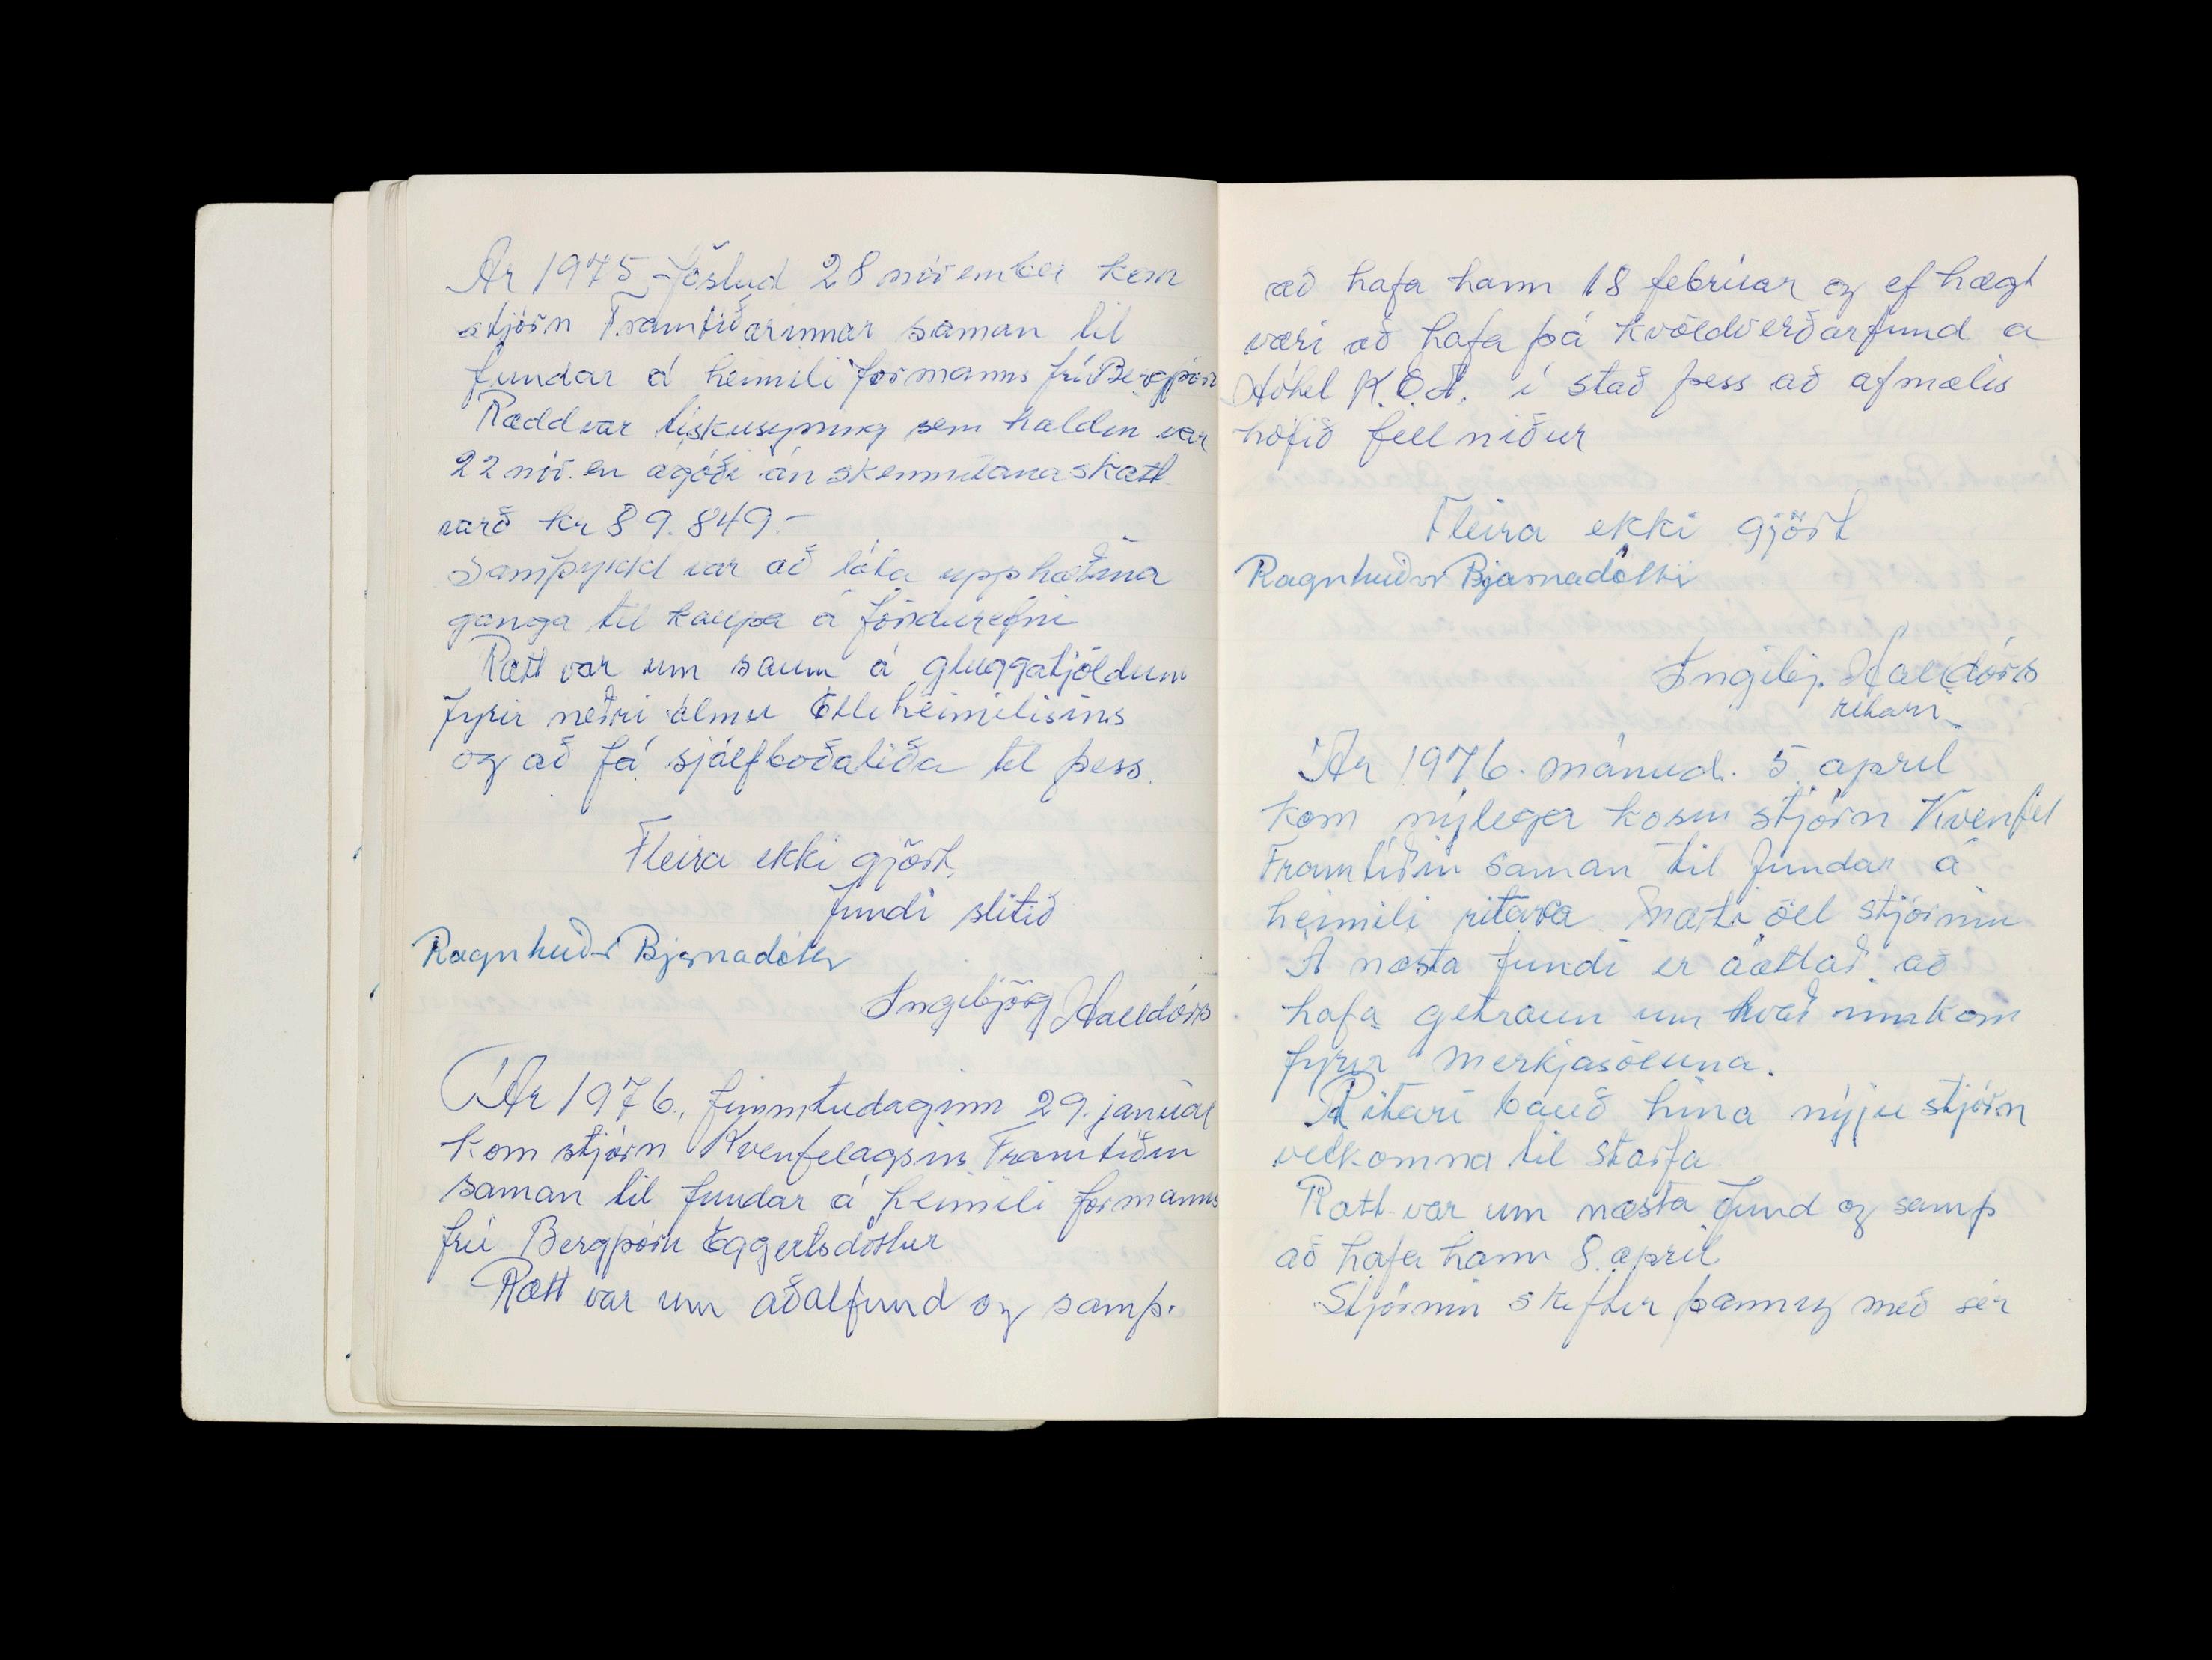 Ár 1975, föstud 28 nóvember kom
stjórn Framtíðarinnar saman til
fundar á heimili formanns frú Bergþór
Rædd var tískusýning sem haldin var
22 nóv. en ágóði án skemmtanaskatt
varð kr 89.849.-
Samþykkt var að láta upphæðina
ganga til kaupa á föndurefni
Rætt var um saum á gluggatjöldum
fyrir neðri álmu Elliheimilisins
og að fá sjálfboðaliða til þess.
Fleira ekki gjört,
fundi slitið
Ragnheiður Bjarnadóttir
Ingibjörg Halldórs
Ár 1976, fimmtudaginn 29. janúar
kom stjórn Kvenfelagsins Framtíðin
saman til fundar á heimili formanns
frú Bergþóru Eggertsdóttur
Rætt var um aðalfund og samþ.
að hafa hann 18 febrúar og ef hægt
væri að hafa þá kvöldverðarfund a
Hótel K.E.A. í stað þess að afmælis
hófið fell niður
Fleira ekki gjört
Ragnheiður Bjarnadóttir
Ingibj. Halldórs
ritari
Ár 1976. mánud. 5 apríl
kom nýlega kosin stjórn Kvenfel
Framtíðin saman til fundar á
heimili ritara Mætti öll stjórnin
Á næsta fundi er áætlað að
hafa getraun um hvað inn kom
fyrir merkjasöluna.
Ritari bauð hina nýju stjórn
velkomna til starfa
Rætt var um næsta fund og samþ
að hafa hann 8. apríl
Stjórnin skiftir þannig með sér